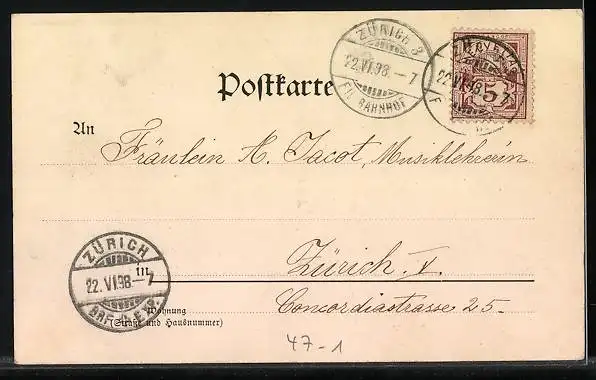 ZÜRICH 3
22.VI.98.-7
FIL. BAHNHOF
22.VI.98.-7
5
Postkarte
An Fräulein A. Jacot, Musiklehrerin
ZÜRICH
22.VI.98.-7
in Zürich. V.
Wohnung
(Straße und Hausnummer)
Concordiastrasse 25.
47-1